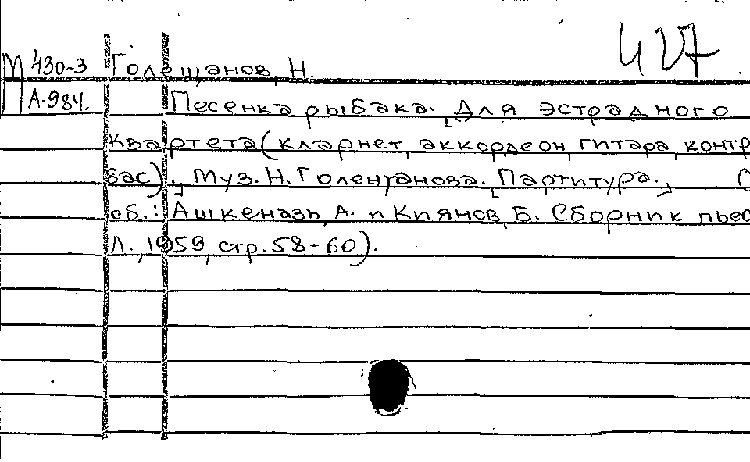 427
М 430-3 Голещанов, Н.
А-984. Песенка рыбака. [Для эстрадного
квартета (кларнет, аккордеон, гитара, контр
бас)]. Муз. Н. Голещанова. [Партитура.]
об.: Ашкенази, А. и Киянов, Б. Сборник пьес
Л., 1959, стр. 58-60).